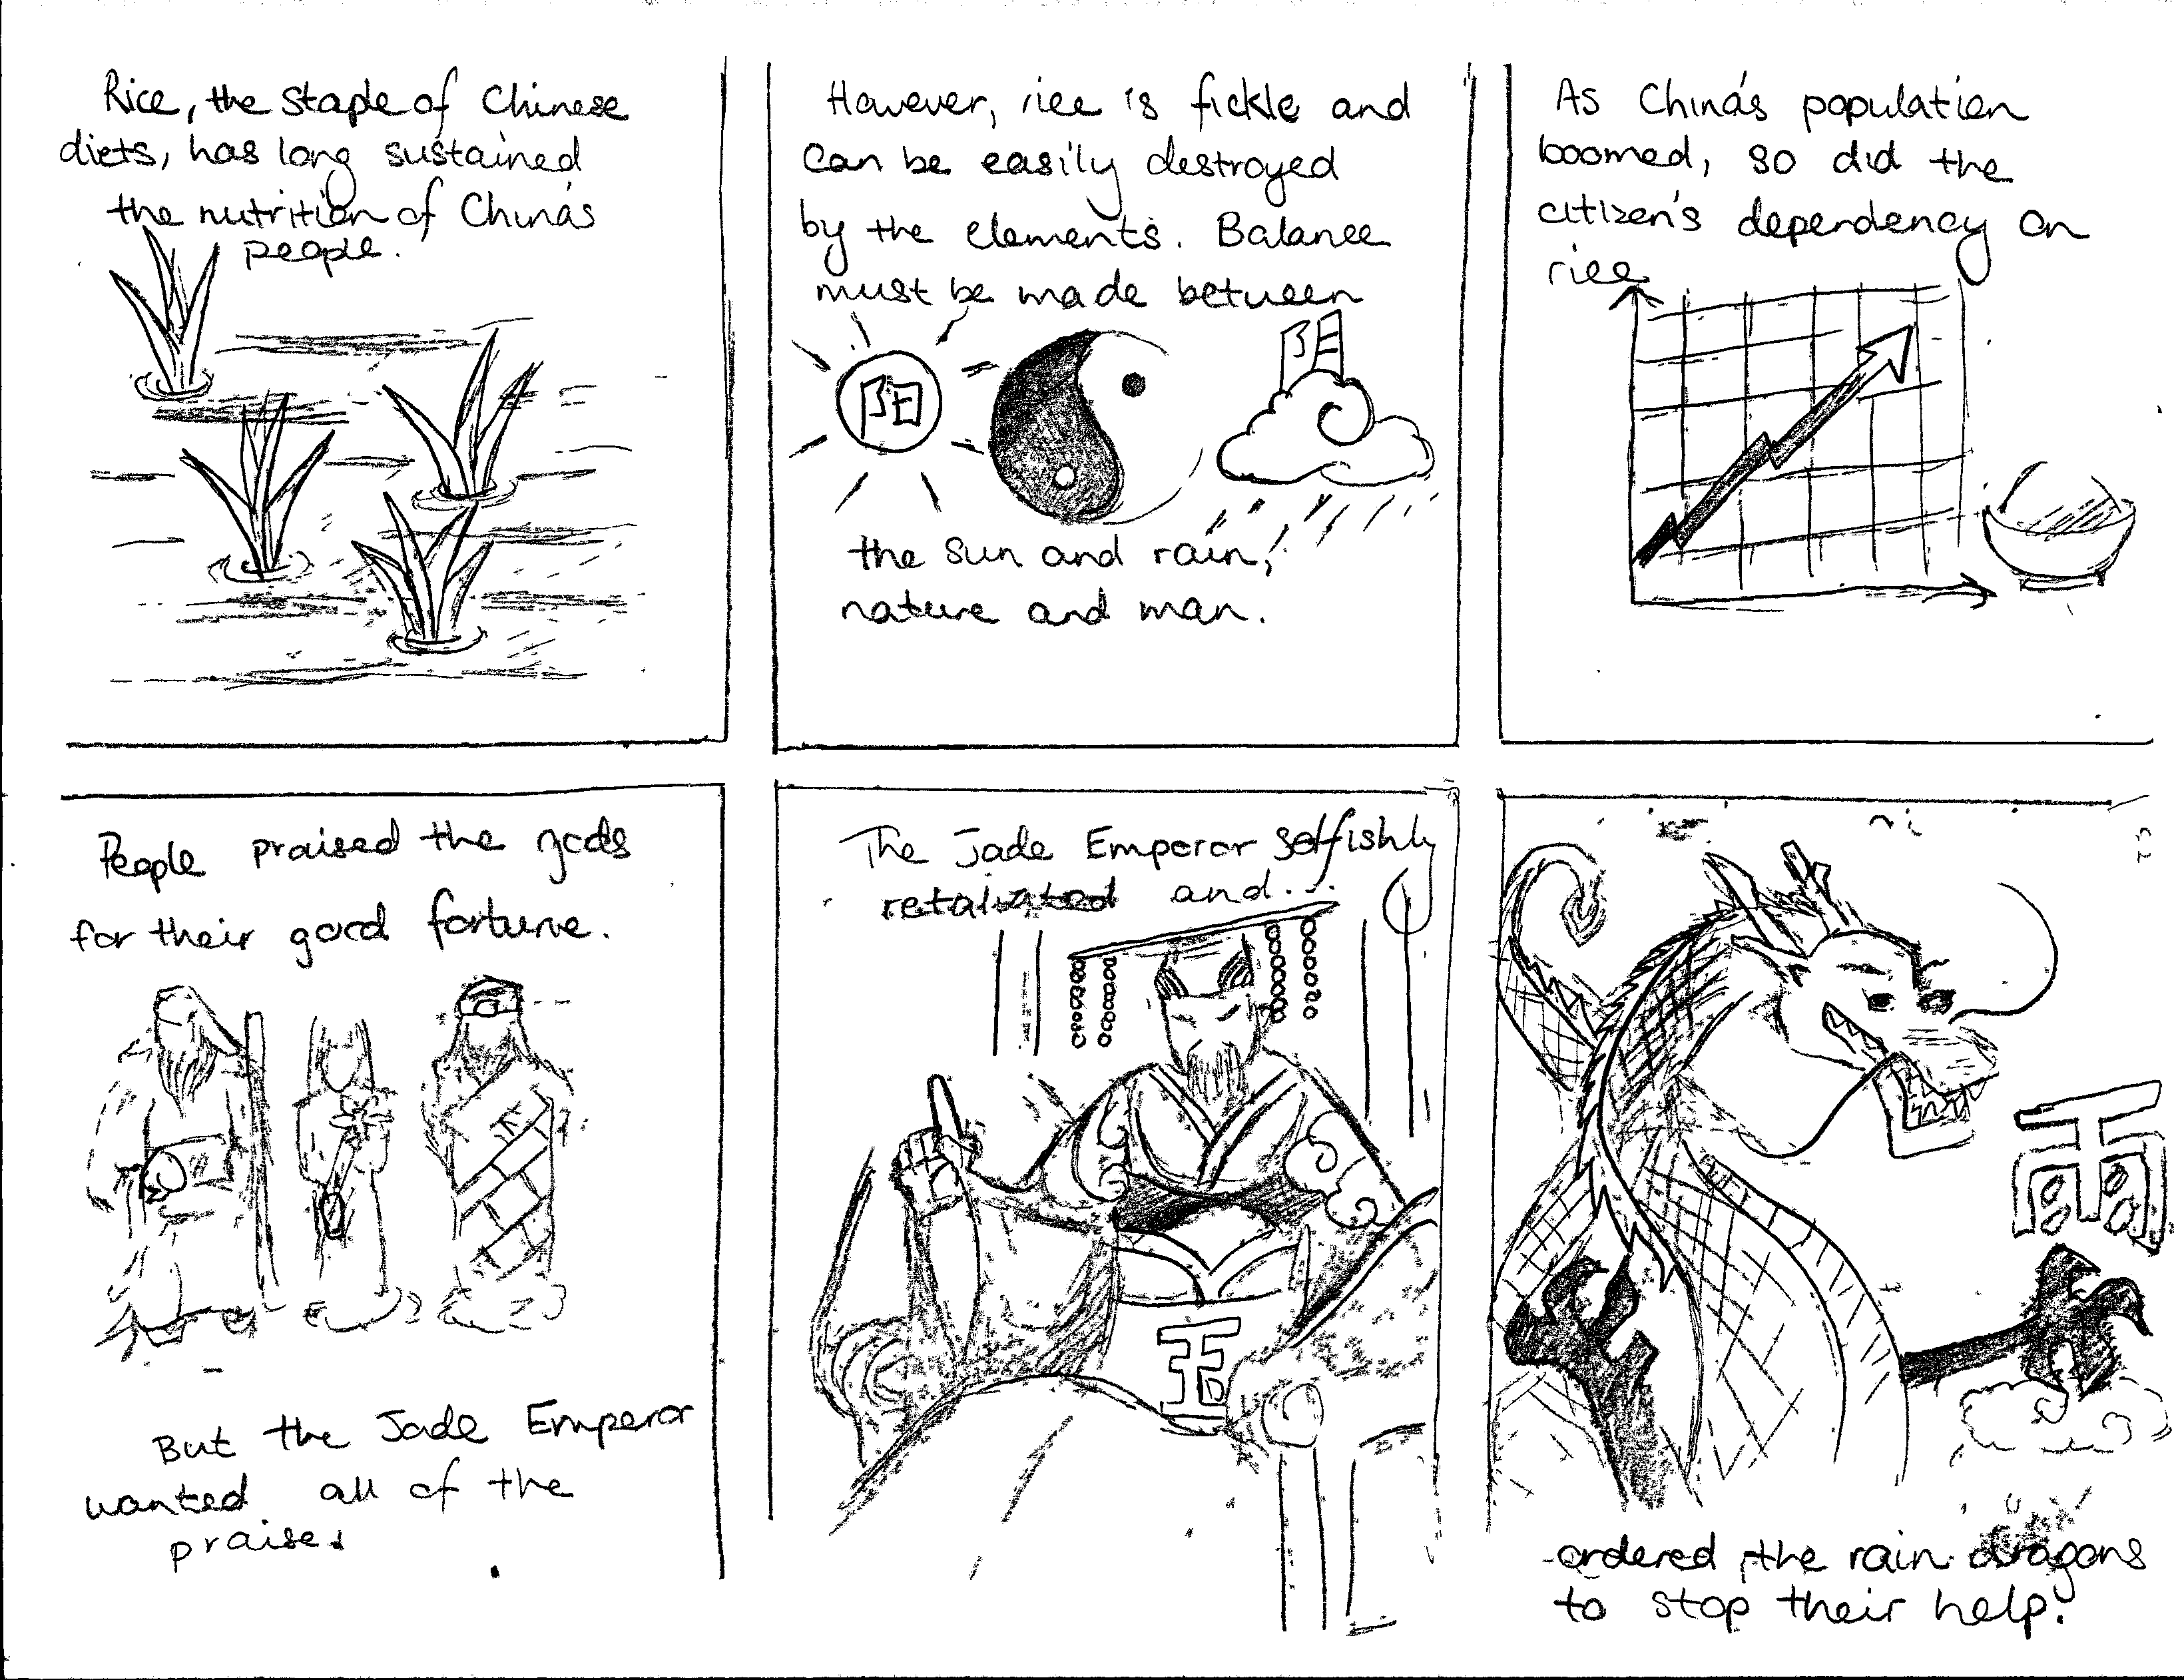 Rice, the staple of Chinese
diets, has long sustained
the nutrition of China's
people.
However, rice is fickle and
can be easily destroyed
by the elements. Balance
must be made between
阳
阴
the sun and rain,
nature and man.
As China's population
boomed, so did the
citizen's dependency on
rice
People praised the gods
for their good fortune.
But the Jade Emperor
wanted all of the
praise.
The Jade Emperor selfishly
retaliated and...
玉
雨
ordered the rain dragons
to stop their help.